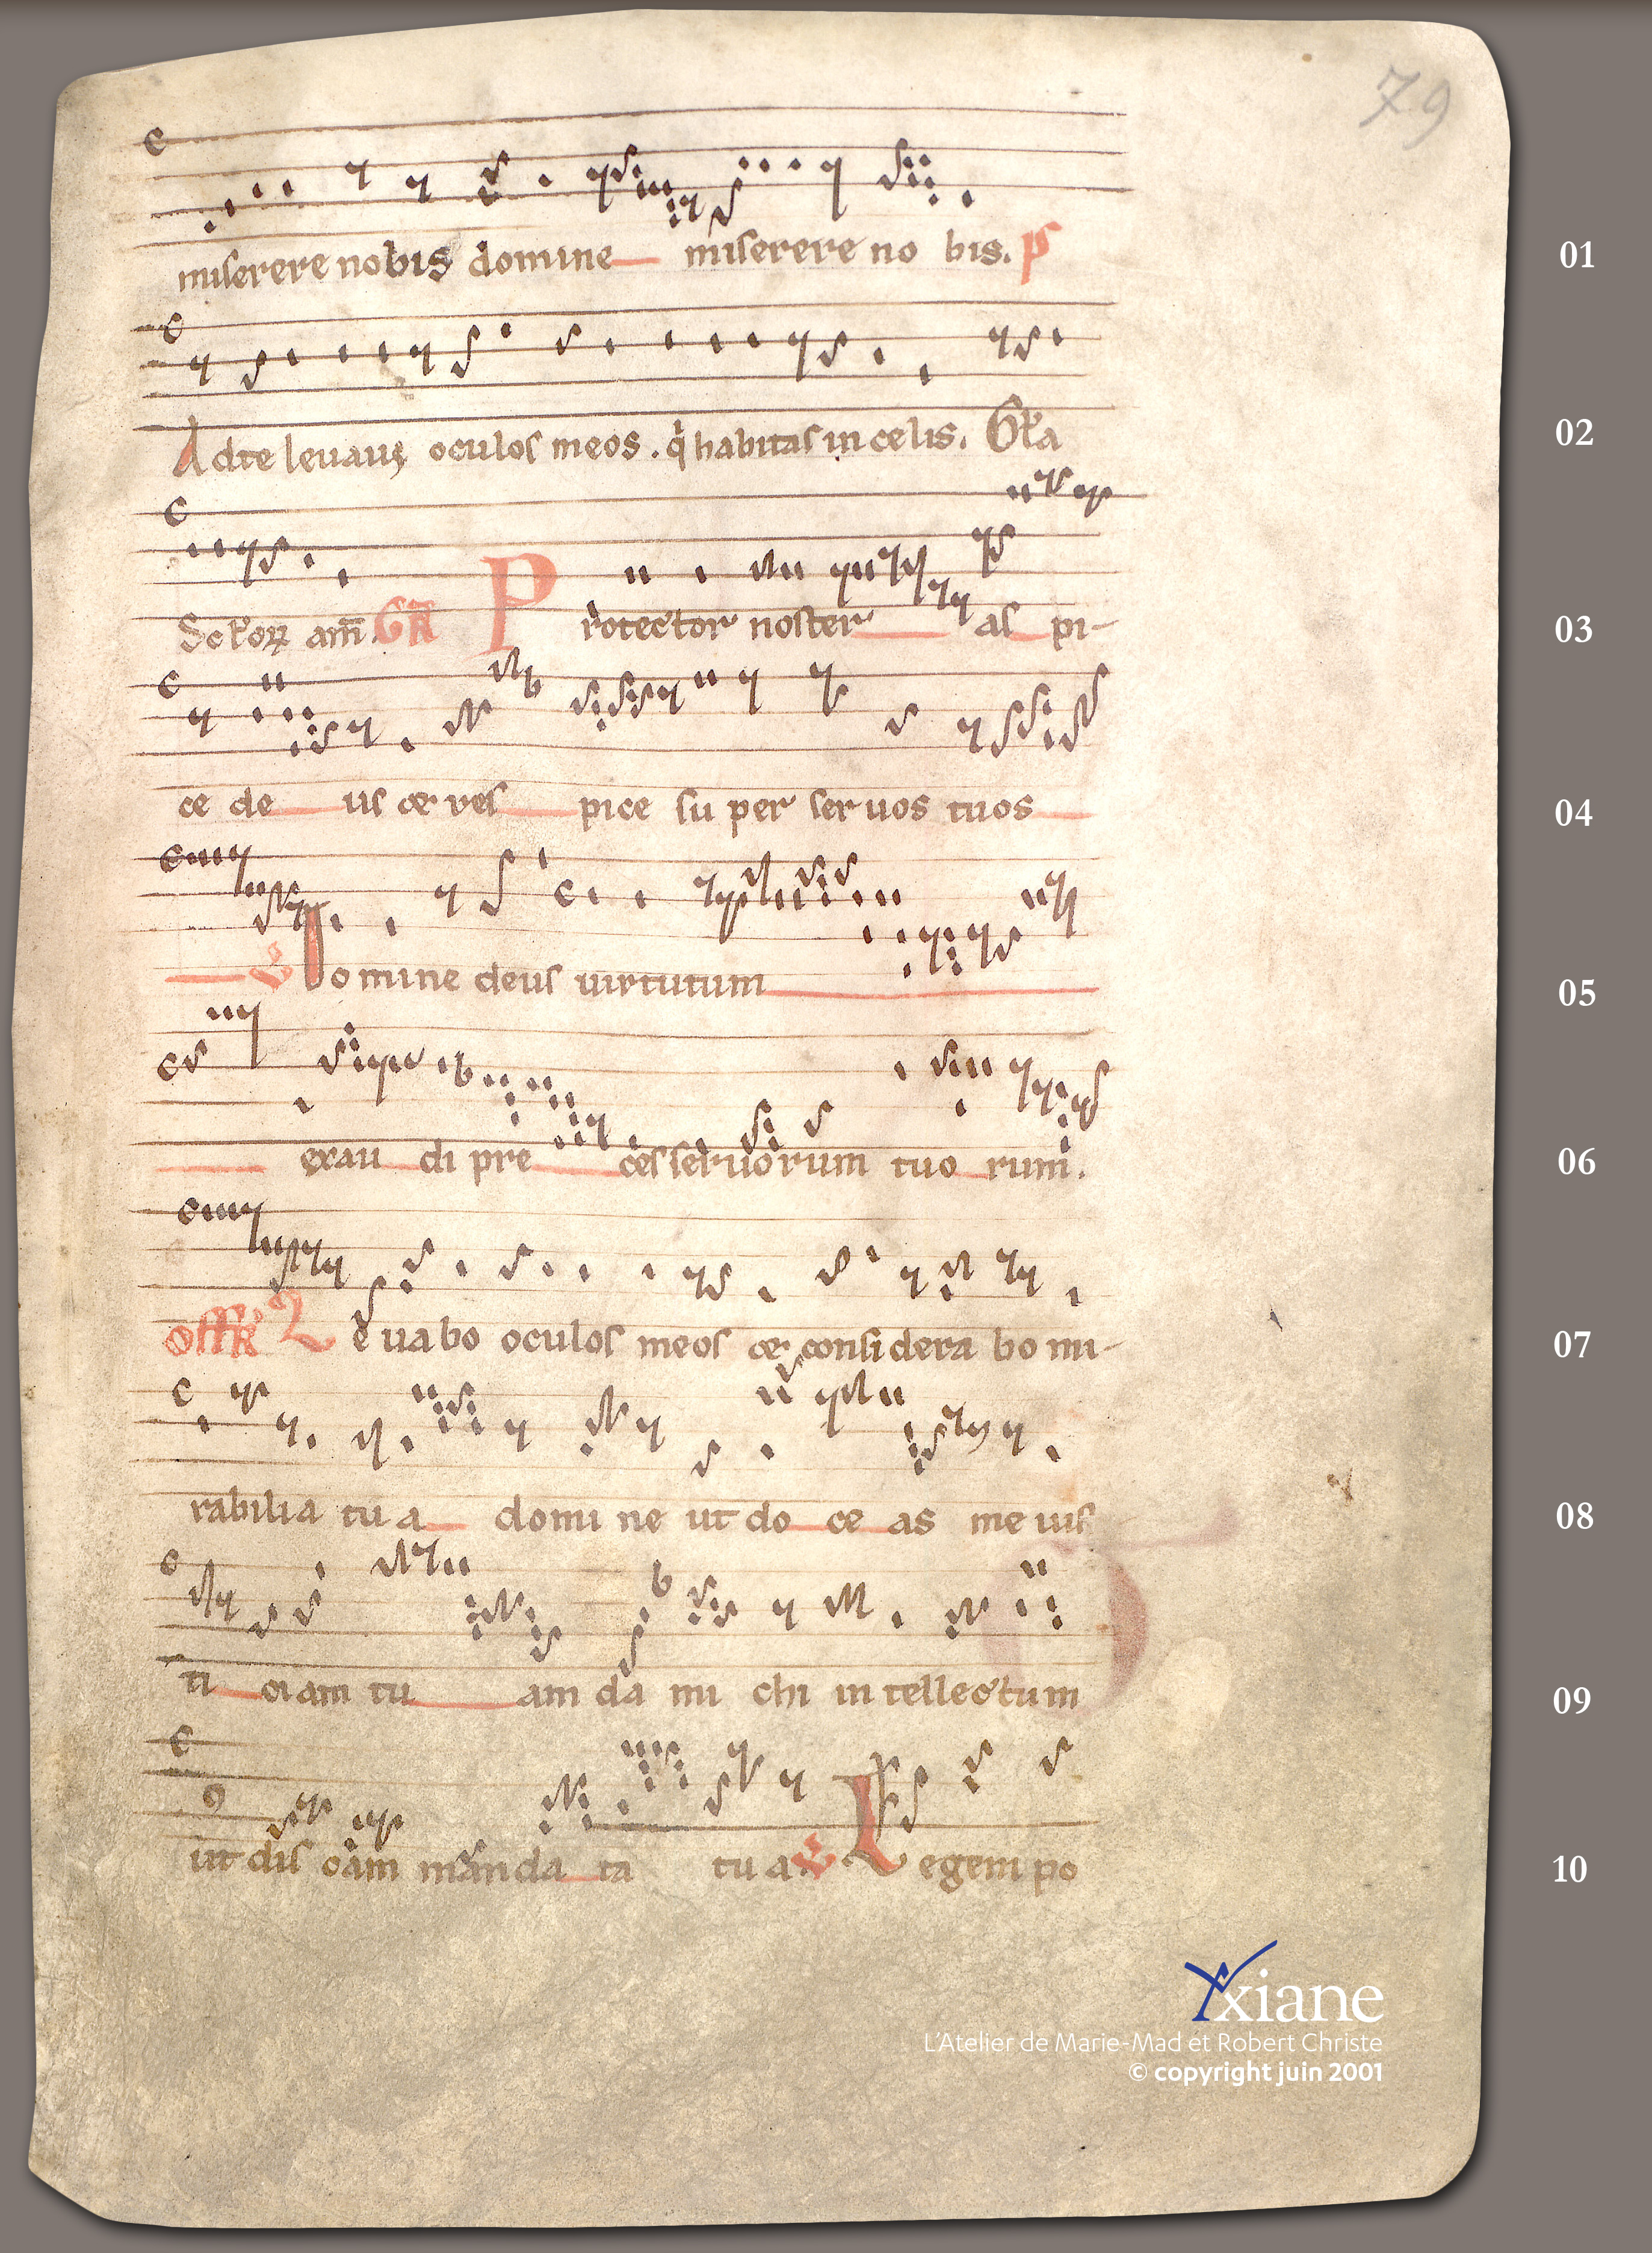 79
miserere nobis domine miserere no bis. ps
01
Ad te leuauꝰ oculos meos . q̇ habitas in celis. Gl̄a
02
Seculoꝝ am̄. GR P rotector noster as pi-
03
ce de us et res pice su per ser uos tuos
04
V Domine deus uirtutum
05
exau di pre ces seruorum tuo rum.
06
offr̄ Le uabo oculos meos et considera bo mi-
07
rabilia tu a domi ne ut do ce as me ius
08
ti ciam tu am da mi chi in tellectum
09
ut dis cam man da ta tu a. V Legem po
10
Axiane
L'Atelier de Marie-Mad et Robert Christe
© copyright juin 2001